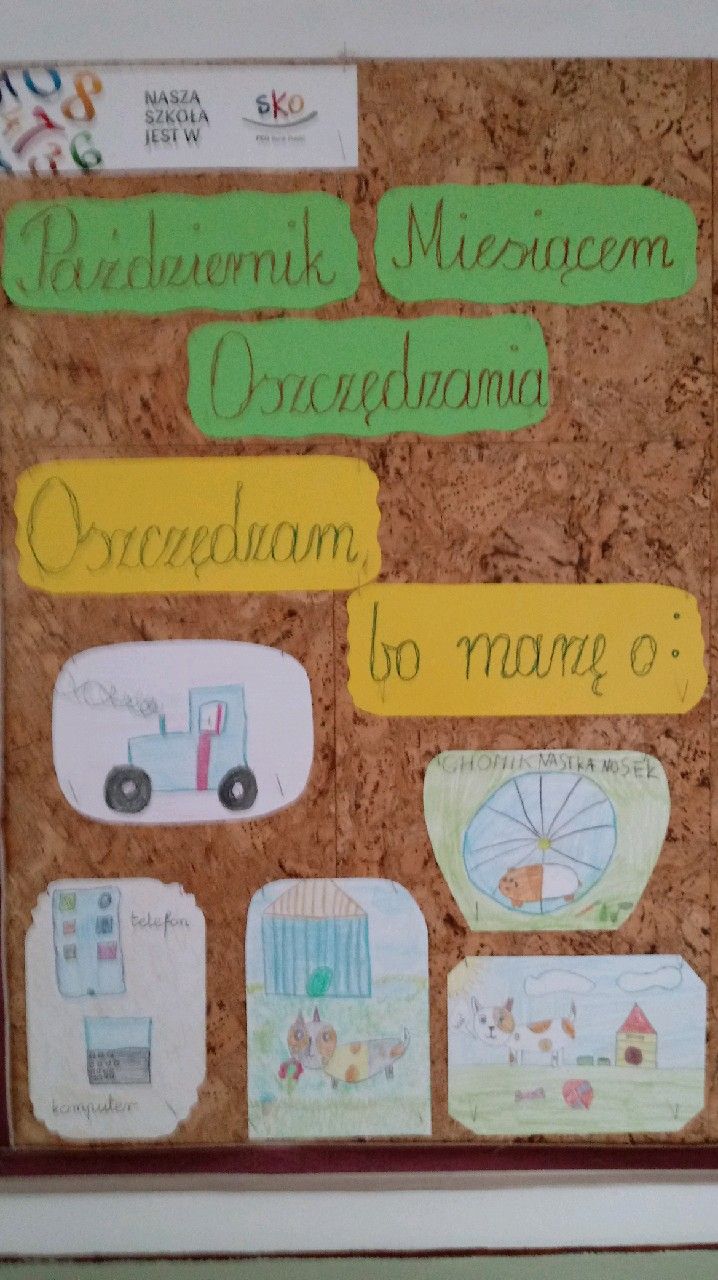 NASZA
SZKOŁA
JEST W
SKO
Październik Miesiącem
Oszczędzania
Oszczędzam,
bo marzę o:
CHOMIK NASTKA NOSEK
telefon
komputer